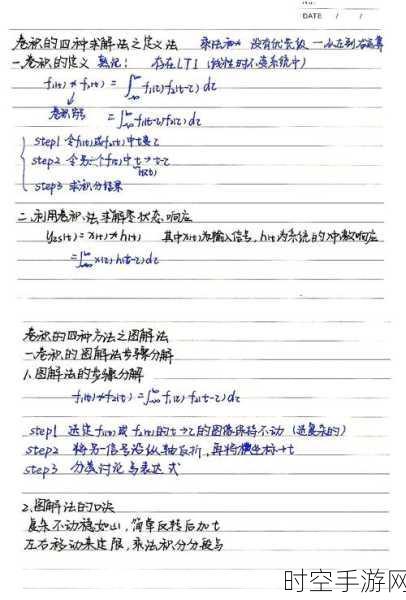 DATE / /
卷积的四种求解法之定义法 乘法和* 没有优先级 一从左到右运算
一.卷积的定义 熟记: 存在LTI(线性时不变系统中)
f₁(t) * f₂(t) = ∫_{-∞}^{∞} f₁(τ)f₂(t-τ)dτ
卷积符号 = ∫_{-∞}^{∞} f₁(t-τ)f₂(τ)dτ
step1 令f₁(t)或f₂(t)中t变τ
step2 令另一个f(t)中t→t-τ
h(t)
step3 求积分结果
二.利用卷积法求解零状态响应
yzs(t) = x(t) * h(t) 其中x(t)为输入信号,h(t)为系统的冲激响应
= ∫_{-∞}^{∞} x(τ)h(t-τ)dτ
卷积的四种方法之图解法
一.卷积的图解法步骤分解
1.图解法的步骤分解
f₁(t) * f₂(t) = ∫_{-∞}^{∞} f₁(τ)f₂(t-τ)dτ
step1 选定f₁(t)或f₂(t)的t→τ的图像保持不动(选复杂的)
step2 将另一信号沿纵轴反折,再将横坐标+t
step3 分类讨论写表达式
2.图解法的口诀
复杂不动稳如山,简单反转后加t
左右移动来定限,乘法积分分段写
时空手游网